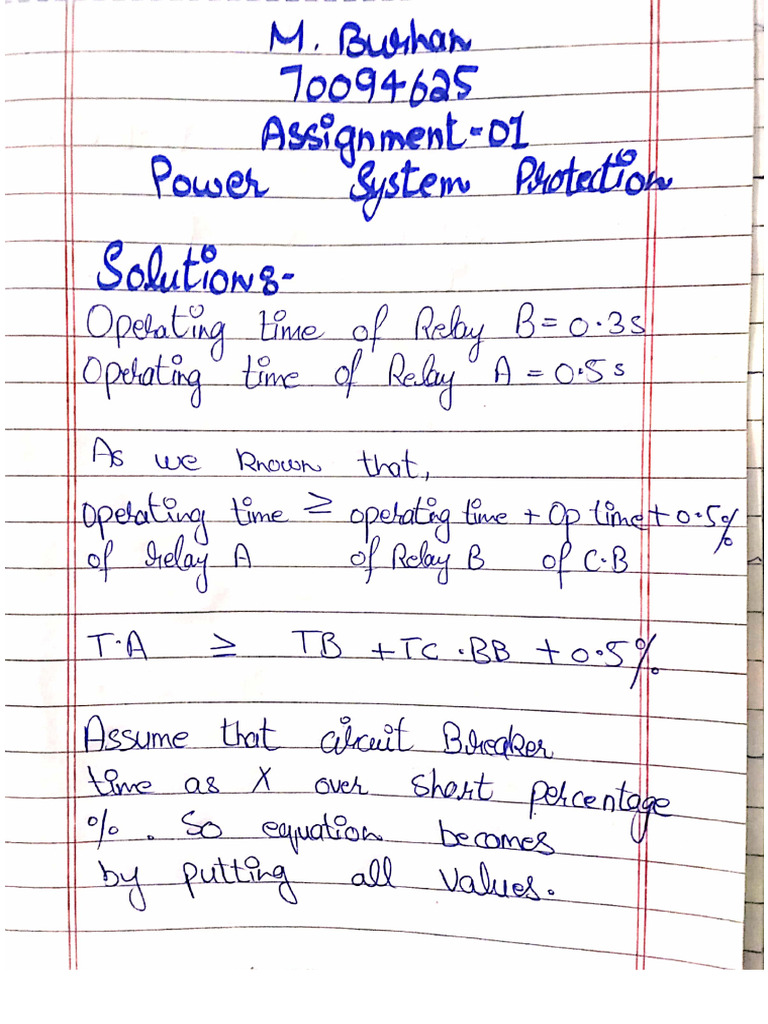 M. Burhan
70094625
Assignment-01
Power System Protection
Solution:-
Operating time of Relay B = 0.3s
Operating time of Relay A = 0.5s
As we known that,
operating time ≥ operating time + Op time + 0.5%
of relay A of Relay B of C.B
T.A ≥ TB + TC.BB + 0.5%
Assume that circuit Breaker
time as X over short percentage
%. So equation becomes
by putting all values.